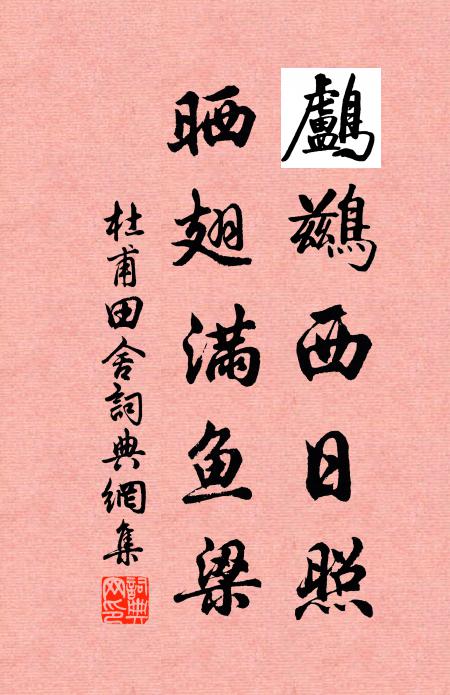 鸕鷀西日照
晒翅滿鱼梁
杜甫田舍詞典網集
詞典网印